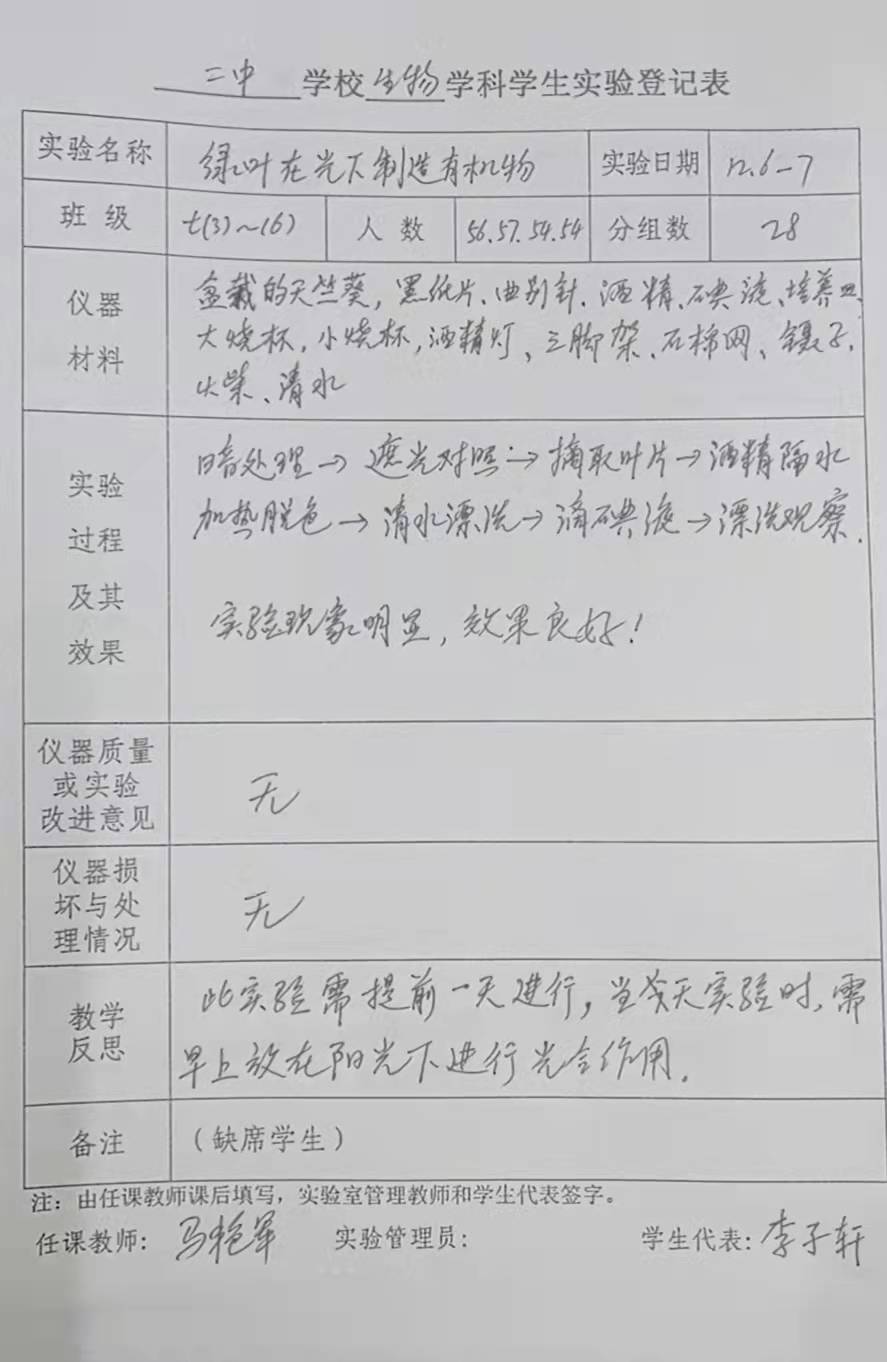 二中 学校 生物 学科学生实验登记表
实验名称 绿叶在光下制造有机物 实验日期 12.6-7
班 级 七(3)~(6) 人 数 56.57.54.54 分组数 28
仪器
材料
盆栽的天竺葵，黑纸片、曲别针、酒精、碘液、培养皿、
大烧杯，小烧杯，酒精灯、三脚架、石棉网、镊子，
火柴、清水
实验
过程
及其
效果
暗处理→遮光对照→摘取叶片→酒精隔水
加热脱色→清水漂洗→滴碘液→漂洗观察．
实验现象明显，效果良好！
仪器质量
或实验
改进意见
无
仪器损
坏与处
理情况
无
教学
反思
此实验需提前一天进行，当天实验时，需
早上放在阳光下进行光合作用．
备注 （缺席学生）
注：由任课教师课后填写，实验室管理教师和学生代表签字。
任课教师: 马艳军 实验管理员: 学生代表: 李子轩